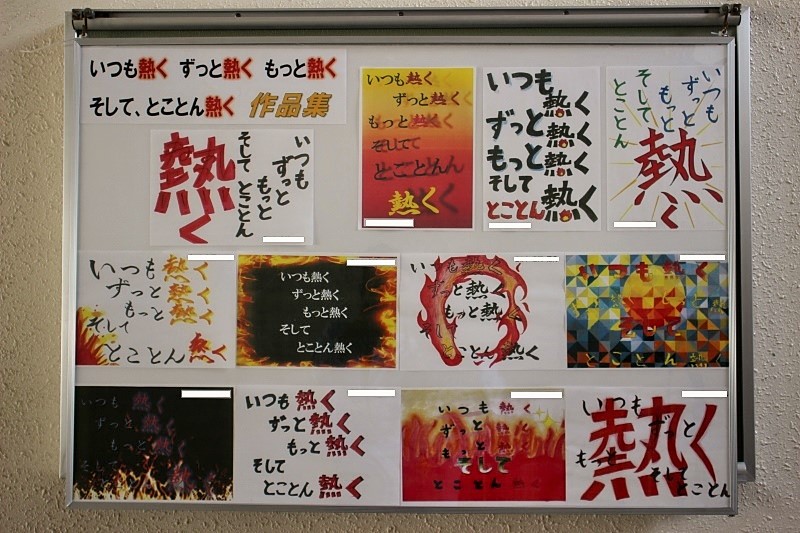 いつも熱く ずっと熱く もっと熱く
そして、とことん熱く 作品集
いつも
ずっと
もっと
そして とことん
熱く
いつも熱く
ずっと熱く
もっと熱く
そして
とことん
熱く
いつも
熱く
ずっと
熱く
もっと
熱く
そして
とことん
熱く
いつも
ずっと
もっと
そして
とことん
熱く
いつも熱く
ずっと熱く
もっと熱く
そして
とことん熱く
いつも熱く
ずっと熱く
もっと熱く
そして
とことん熱く
い
ずっと熱く
もっと熱く
そして
とん熱く
いつも熱く
そして
とことん熱く
いつも熱く
ずっと熱く
もっと熱く
そして
熱く
いつも熱く
ずっと熱く
もっと熱く
そして
とことん熱く
いつも熱く
ずっと熱く
もっと熱く
そして
とことん熱く
いつも
ずっと
熱く
もっと
そして
とことん